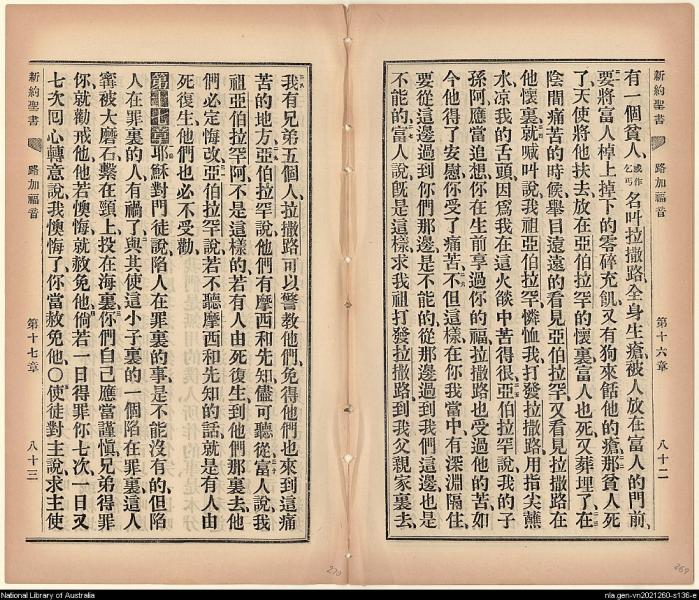 新約聖書 路加福音 第十六章 八十二
有一個貧人、或作乞丐名叫拉撒路、全身生瘡、被人放在富人的門前、
要將富人棹上掉下的零碎充飢、又有狗來餂他的瘡、那貧人死
了、天使將他扶去、放在亞伯拉罕的懷裏、富人也死、又葬埋了、在
陰間痛苦的時候、舉目遠遠的看見亞伯拉罕、又看見拉撒路在
他懷裏、就喊叫說、我祖亞伯拉罕、憐恤我、打發拉撒路、用指尖蘸
水、凉我的舌頭、因爲我在這火燄中苦得很、亞伯拉罕說、我的子
孫阿、應當追想你在生前享過你的福、拉撒路也受過他的苦、如
今他得了安慰、你受了痛苦、不但這樣、在你我當中、有深淵隔住、
要從這邊過到你們那邊、是不能的、從那邊過到我們這邊、也是
不能的、富人說、旣是這樣、求我祖打發拉撒路、到我父親家裏去、
我有兄弟五個人、拉撒路可以警教他們、免得他們也來到這痛
苦的地方、亞伯拉罕說、他們有摩西和先知、儘可聽從、富人說、我
祖亞伯拉罕阿、不是這樣的、若有人由死復生、到他們那裏去、他
們必定悔改、亞伯拉罕說、若不聽摩西和先知的話、就是有人由
死復生、他們也必不受勸、
第十七章 耶穌對門徒說、陷人在罪裏的事、是不能沒有的、但陷
人在罪裏的人有禍了、與其使這小子裏的一個陷在罪裏、這人
寗被大磨石繫在頸上、投在海裏、你們自己應當謹愼、兄弟得罪
你、就勸戒他、他若懊悔、就赦免他、倘若一日得罪你七次、一日又
七次囘心轉意說、我懊悔了、你當赦免他、○使徒對主說、求主使
新約聖書 路加福音 第十七章 八十三
270
269
National Library of Australia
nla.gen-vn2021260-s136-e